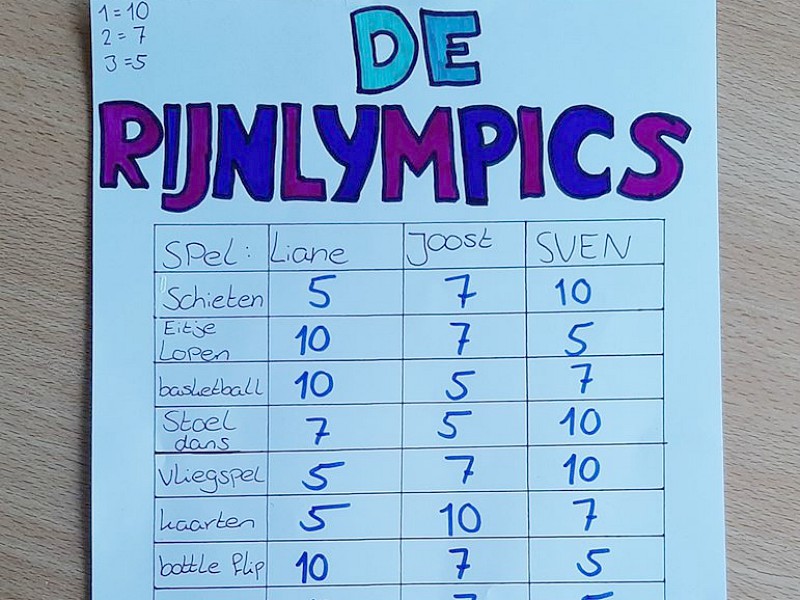 1 = 10
2 = 7
3 = 5
DE
RIJNLYMPICS
SPel: Liane Joost SVEN
Schieten 5 7 10
Eitje Lopen 10 7 5
basketball 10 5 7
Stoel dans 7 5 10
Vliegspel 5 7 10
kaarten 5 10 7
bottle flip 10 7 5